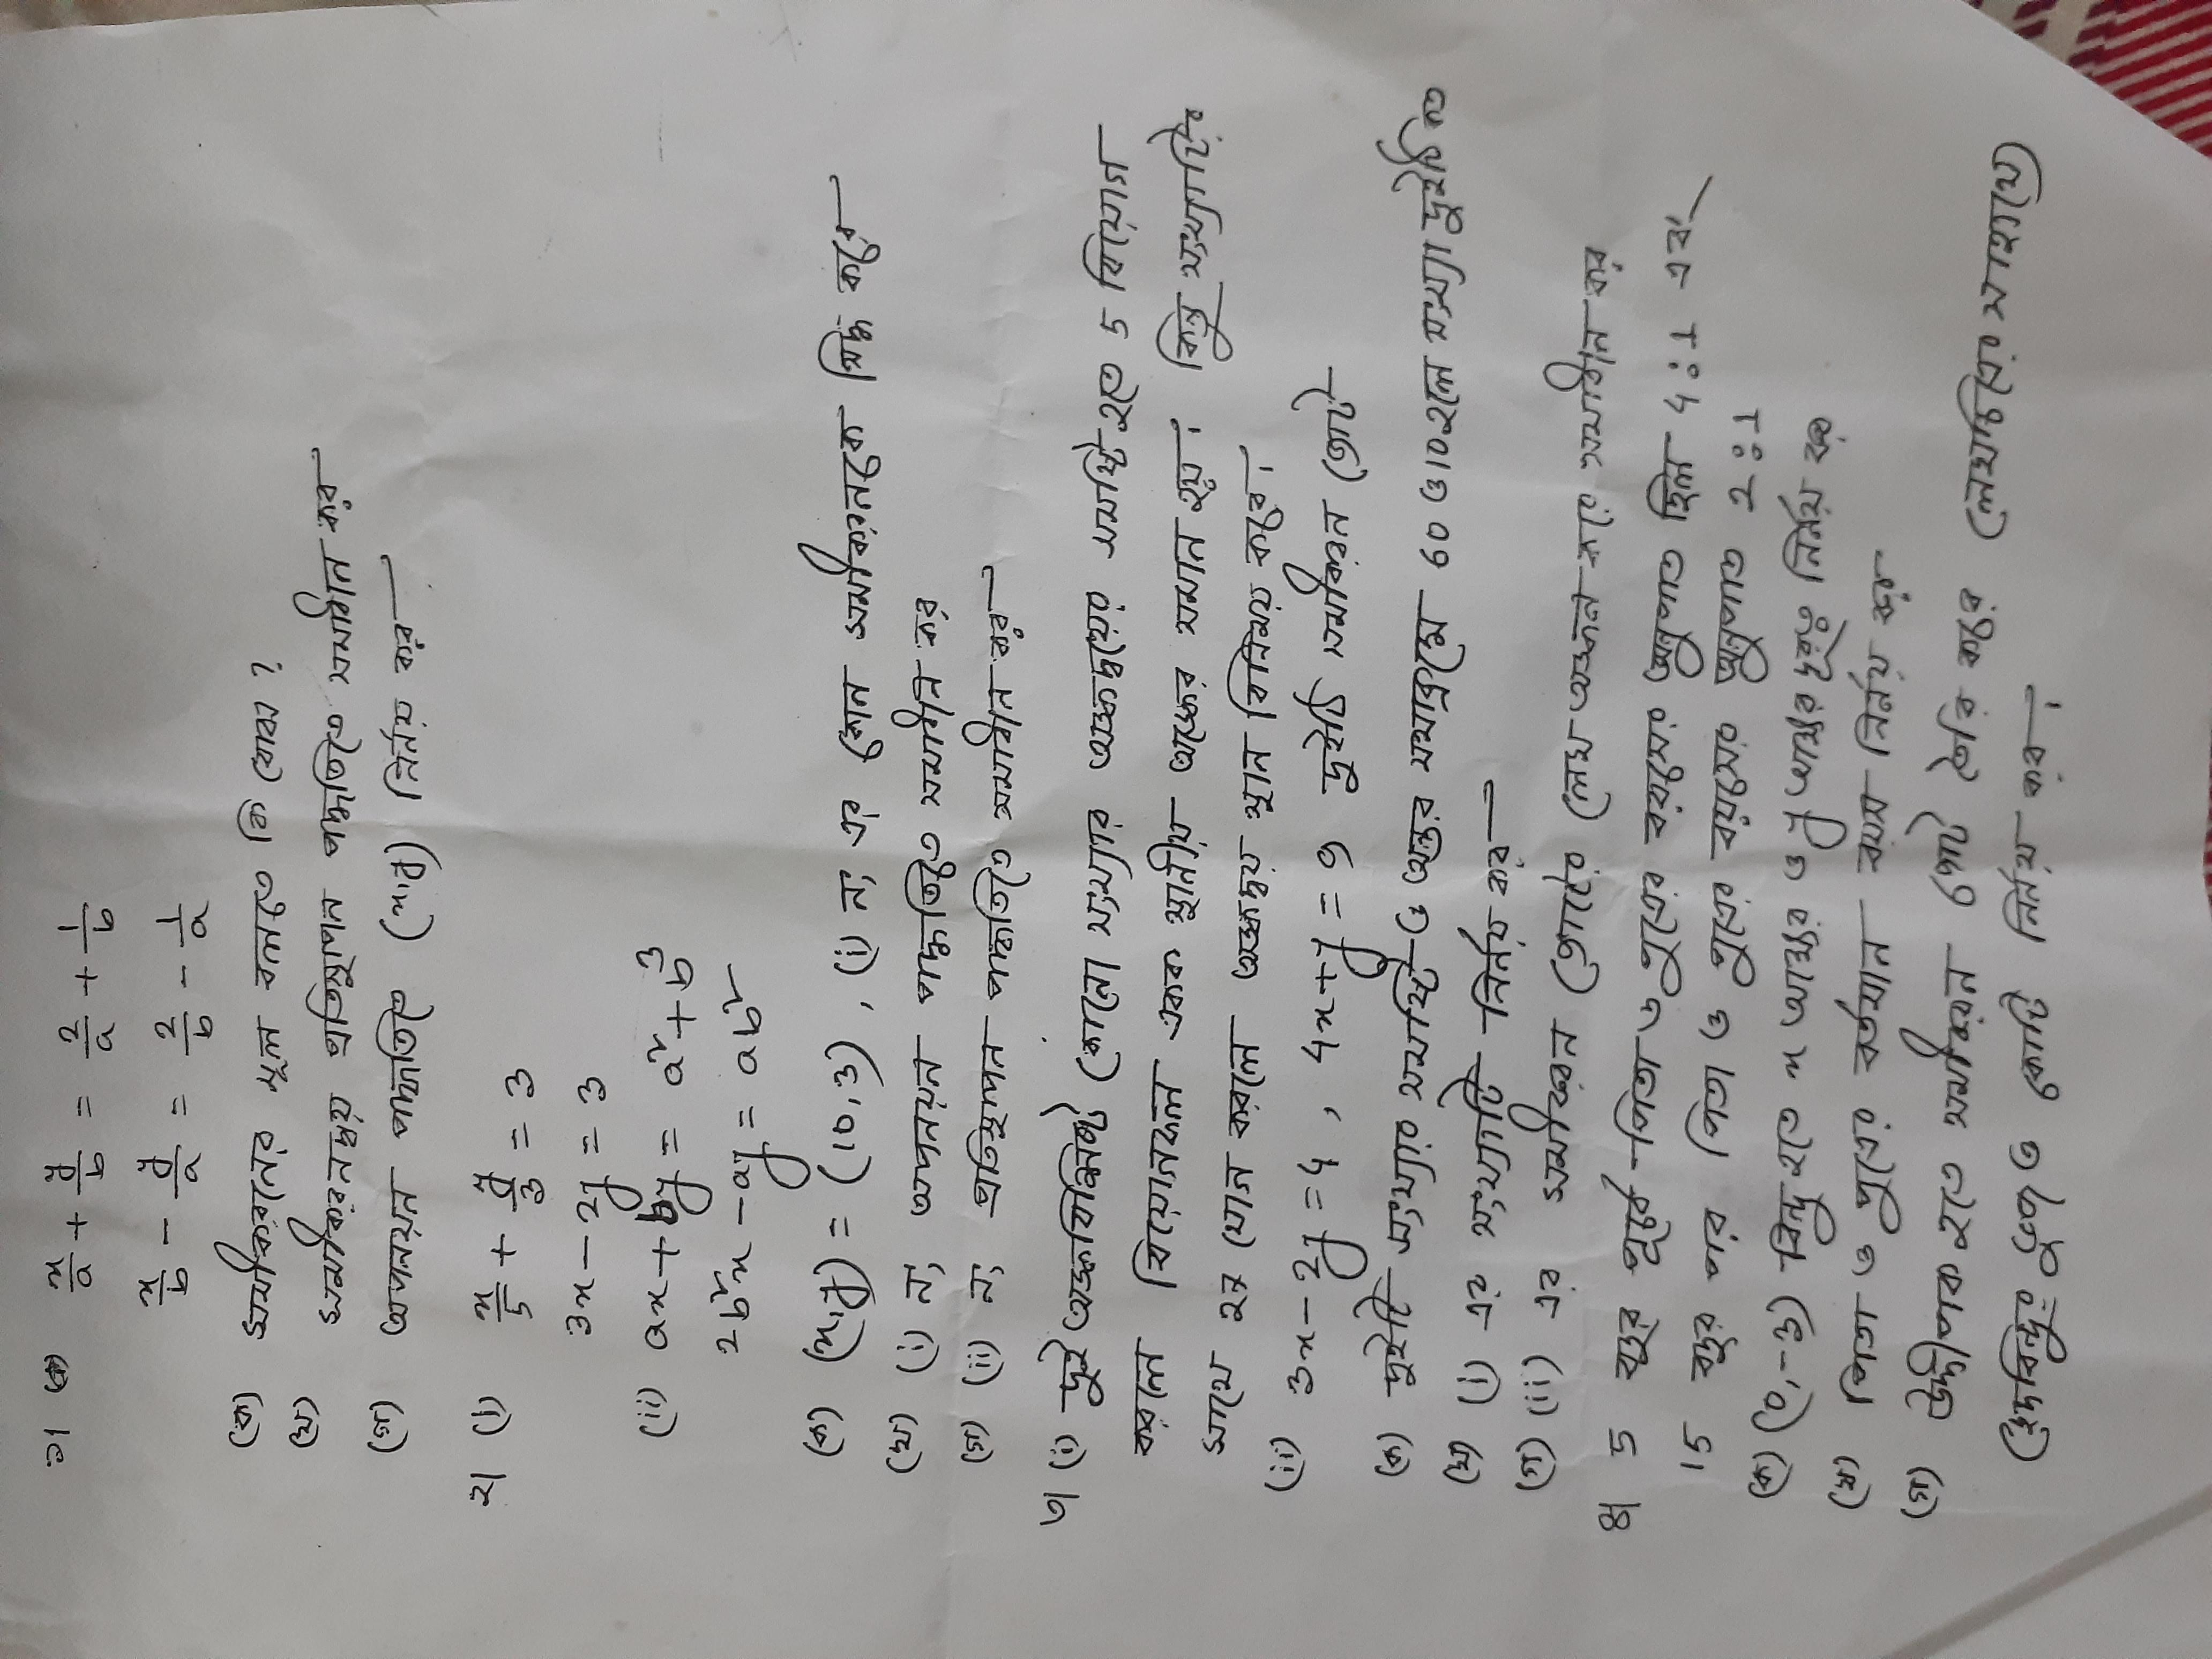 ১। ক x/a + y/b = 2/a + 1/b
x/b - y/a = 2/b - 1/a
(ক) সমীকরনের মূল বলতে কি বোঝ ?
(খ) সমীকরনদ্বয় প্রতিস্থাপন পদ্ধতিতে সমাধান কর
(গ) অপনয়ন পদ্ধতিতে (x,y) নির্নয় কর
২। (i) x/5 + y/3 = 3
3x - 2y = 3
(ii) ax + by = a² + b³
2b²x - ay = ab²
(ক) (x,y) = (10, 3) , (i) নং এর কোন সমীকরনকে সিদ্ধ করে
(খ) (i) নং অপনয়ন পদ্ধতিতে সমাধান কর
(গ) (ii) নং প্রতিস্থাপন পদ্ধতিতে সমাধান কর
৩। (i) দুই অঙ্কবিশিষ্ট কোনো সংখ্যার অঙ্কদ্বয়ের সমষ্টি হতে 5 বিয়োগ
করলে বিয়োগফল একক স্থানীয় অঙ্কের সমান হয়। কিন্তু সংখ্যাটির
সাথে 27 যোগ করলে অঙ্কদ্বয় স্থান বিনিময় করে।
(ii) 3x - 2y = 4 , 4x + y = 9 দুইটি সমীকরন জোট
(ক) দুইটি সংখ্যার সমষ্টি ও অন্তর যথাক্রমে 60 ও 10 হলে সংখ্যা দুইটি কত
(খ) (i) এর সংখ্যাটি নির্নয় কর
(গ) (ii) এর সমীকরন জোটের লেখ অঙ্কন করে সমাধান কর
৪। 5 বছর পূর্বে পিতা ও পুত্রের বয়সের অনুপাত ছিল 4:1 এবং
15 বছর পর পিতা ও পুত্রের বয়সের অনুপাত 2:1
(ক) (0,-3) বিন্দু হতে x অক্ষের ও y অক্ষের দূরত্ব নির্নয় কর
(খ) পিতা ও পুত্রের বর্তমান বয়স নির্নয় কর
(গ) উদ্দীপক হতে সমীকরন জোট তৈরি করে লেখচিত্রের সাহায্যে
ছেদবিন্দুর ভুজ ও কোটি নির্নয় কর।